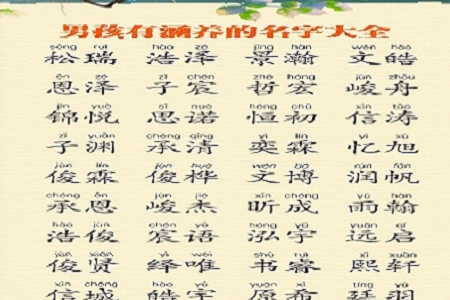 男孩有涵养的名字大全
sōng ruì hào zé jǐng hàn wén hào
松瑞 浩泽 景瀚 文皓
ēn zé zǐ chén zhé hóng jùn zhōu
恩泽 子宸 哲宏 峻舟
jǐn yuè sī nuò héng chū xìn tāo
锦悦 思诺 恒初 信涛
zǐ yuān chéng qīng yì lín yì xù
子渊 承清 奕霖 忆旭
jùn lín jùn huà wén bó rùn fān
俊霖 俊桦 文博 润帆
chéng ēn jùn jié xīn chéng yǔ hàn
承恩 峻杰 昕成 雨翰
hào jùn chén yǔ hóng yǔ yuǎn qǐ
浩俊 宸语 泓宇 远启
jùn xián yì wéi shū ruì xī xuān
俊贤 绎唯 书睿 熙轩
xìn chéng hào yǔ yuán xī tíng yǔ
信城 皓宇 原希 廷羽